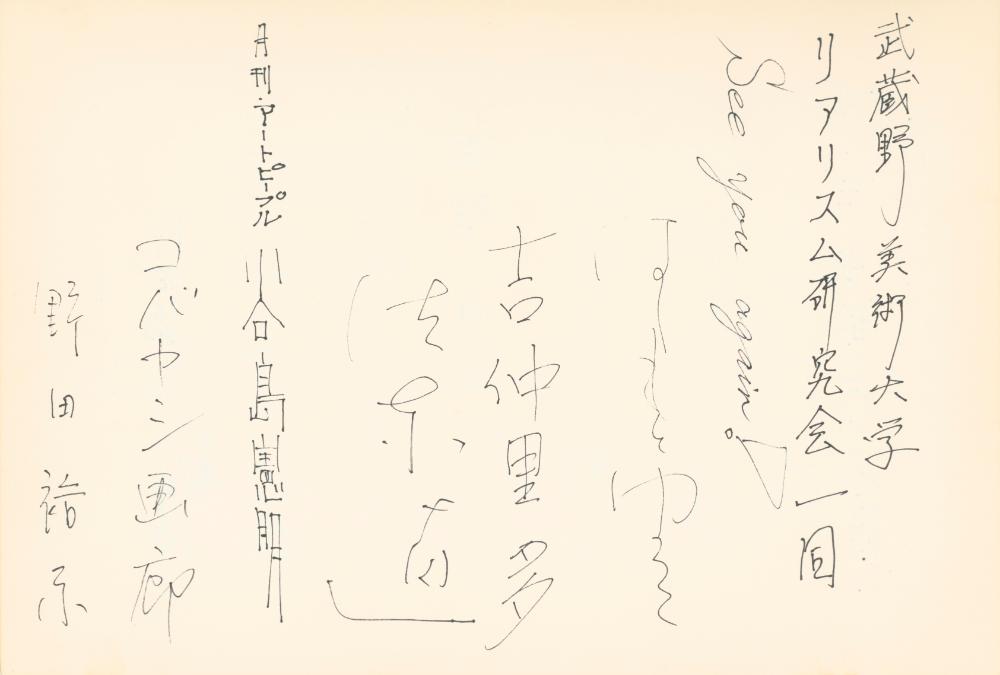 武蔵野美術大学
リアリスム研究会 一同
See you again!
吉仲里夛
月刊アートピープル 小谷島憲明
コバヤシ画廊
野田裕示